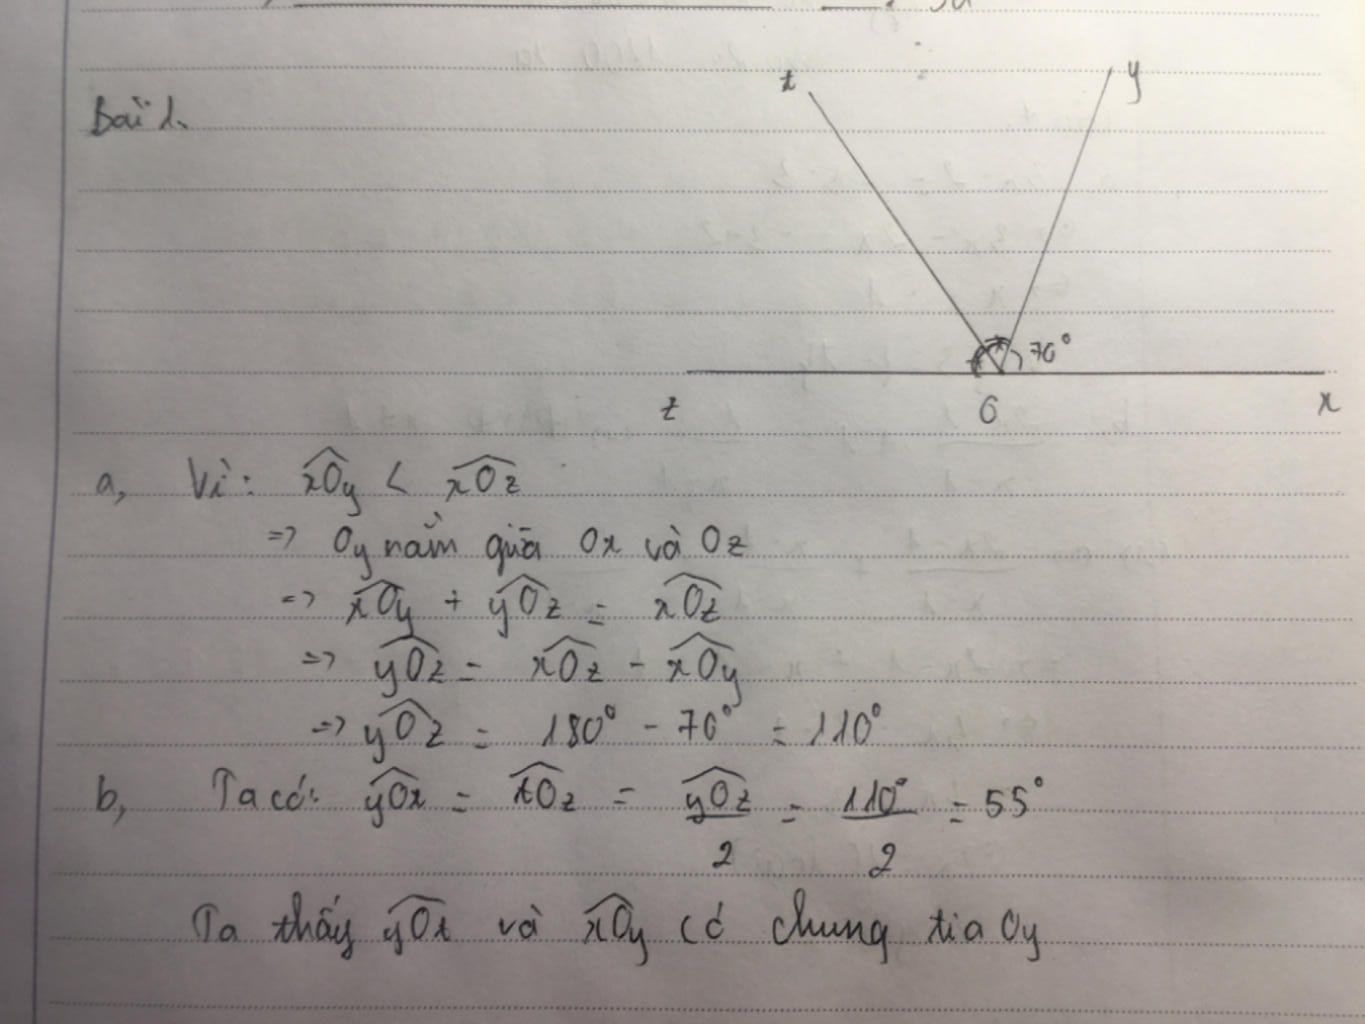 Bài 1.
t
y
70°
z
O
x
a, Vì: xOy < xOz
=> Oy nằm giữa Ox và Oz
=> xOy + yOz = xOz
=> yOz = xOz - xOy
=> yOz = 180° - 70° = 110°
b, Ta có: yOt = tOz = yOz/2 = 110°/2 = 55°
Ta thấy yOt và xOy có chung tia Oy